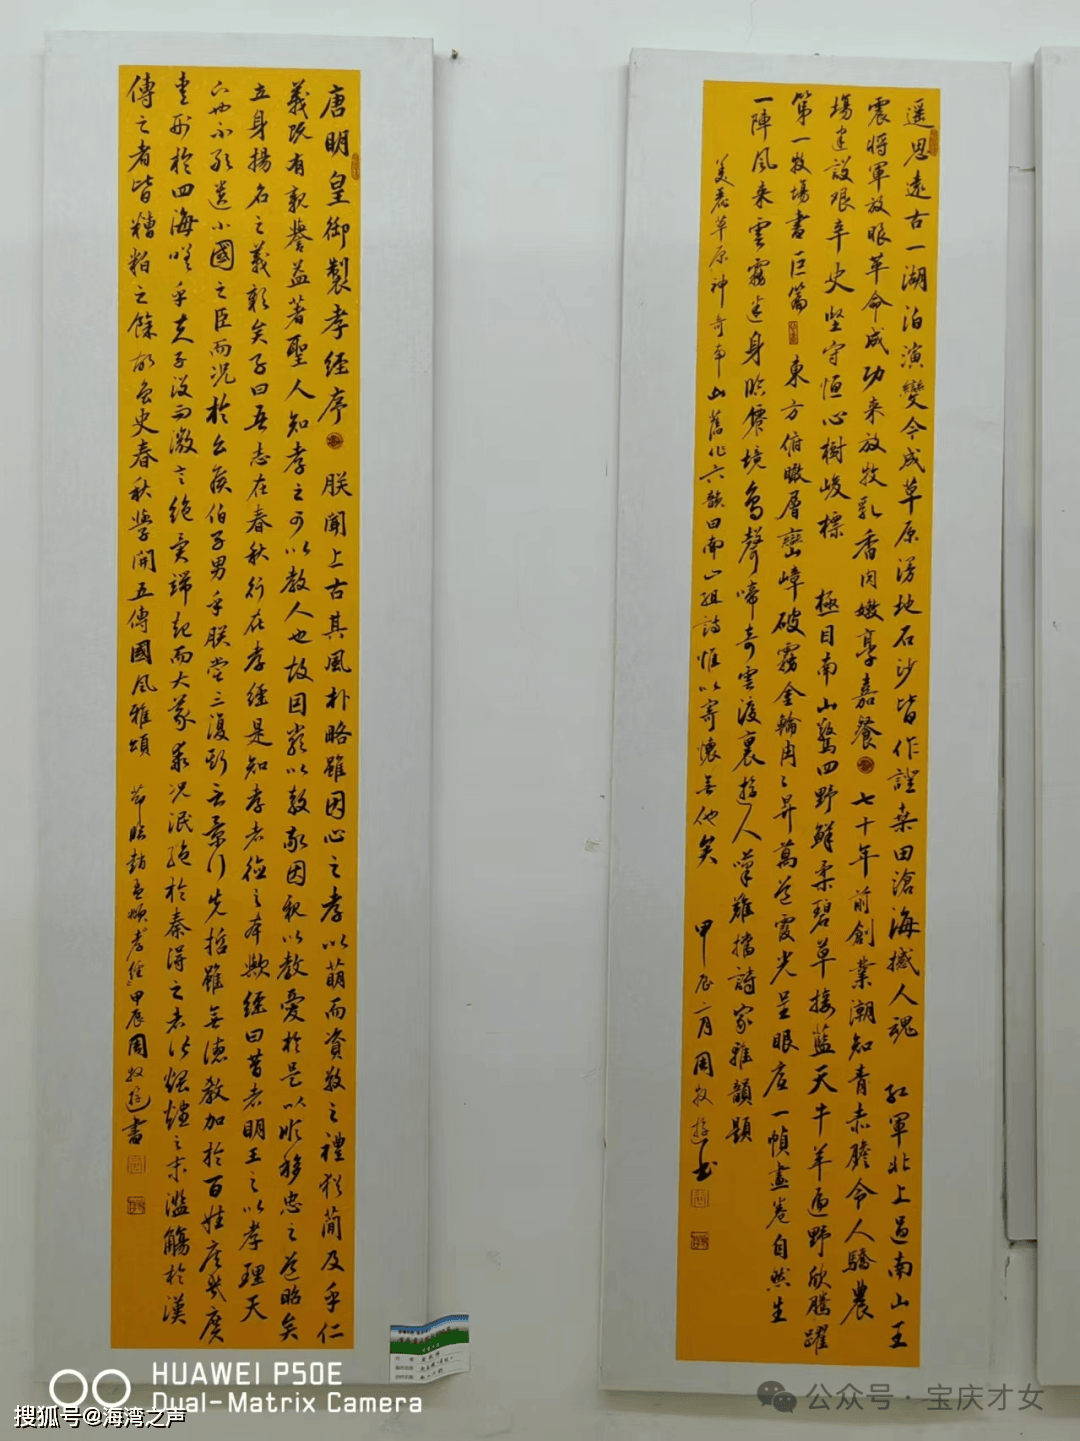 唐明皇御製孝經序 朕聞上古其風朴略雖因心之孝以萌而資敬之禮猶簡及乎仁
義既有親譽益著聖人知孝之可以教人也故因嚴以教敬因親以教愛於是以順移忠之道昭矣
立身揚名之義彰矣子曰吾志在春秋行在孝經是知孝者德之本歟經曰昔者明王之以孝理天
下也不敢遺小國之臣而況於公侯伯子男乎朕嘗三復斯言景行先哲雖無德教加於百姓庶幾廣
愛刑於四海嗟乎夫子沒而微言絕異端起而大義乖況泯絕於秦得之者皆煨燼之末濫觴於漢
傳之者皆糟粕之餘故魯史春秋學開五傳國風雅頌 節臨趙孟頫孝經 甲辰周牧遊書
遥思遠古一湖泊演變今成草原漫地石沙皆作證桑田滄海撼人魂 紅軍北上過南山王
震將軍放眼革命成功来放牧乳香肉嫩享嘉餐 七十年前創業潮知青赤膽令人驕農
場建設艰辛史堅守恒心樹峻標 極目南山驚四野鮮柔碧草接藍天牛羊遍野欣騰躍
第一牧場書巨篇 東方俯瞰層巒嶂破霧金輪冉冉昇萬道霞光呈眼底一幀畫卷自然生
一陣风来雲霧迷身臨僊境鳥聲啼奇雲渡裏遊人嘆難擋詩家雅韻題
美麗草原神奇南山舊作六韻曰南山组詩惟以寄懷無他矣 甲辰六月周牧遊书
HUAWEI P50E
Dual-Matrix Camera
搜狐号@海湾之声
公众号 · 宝庆才女